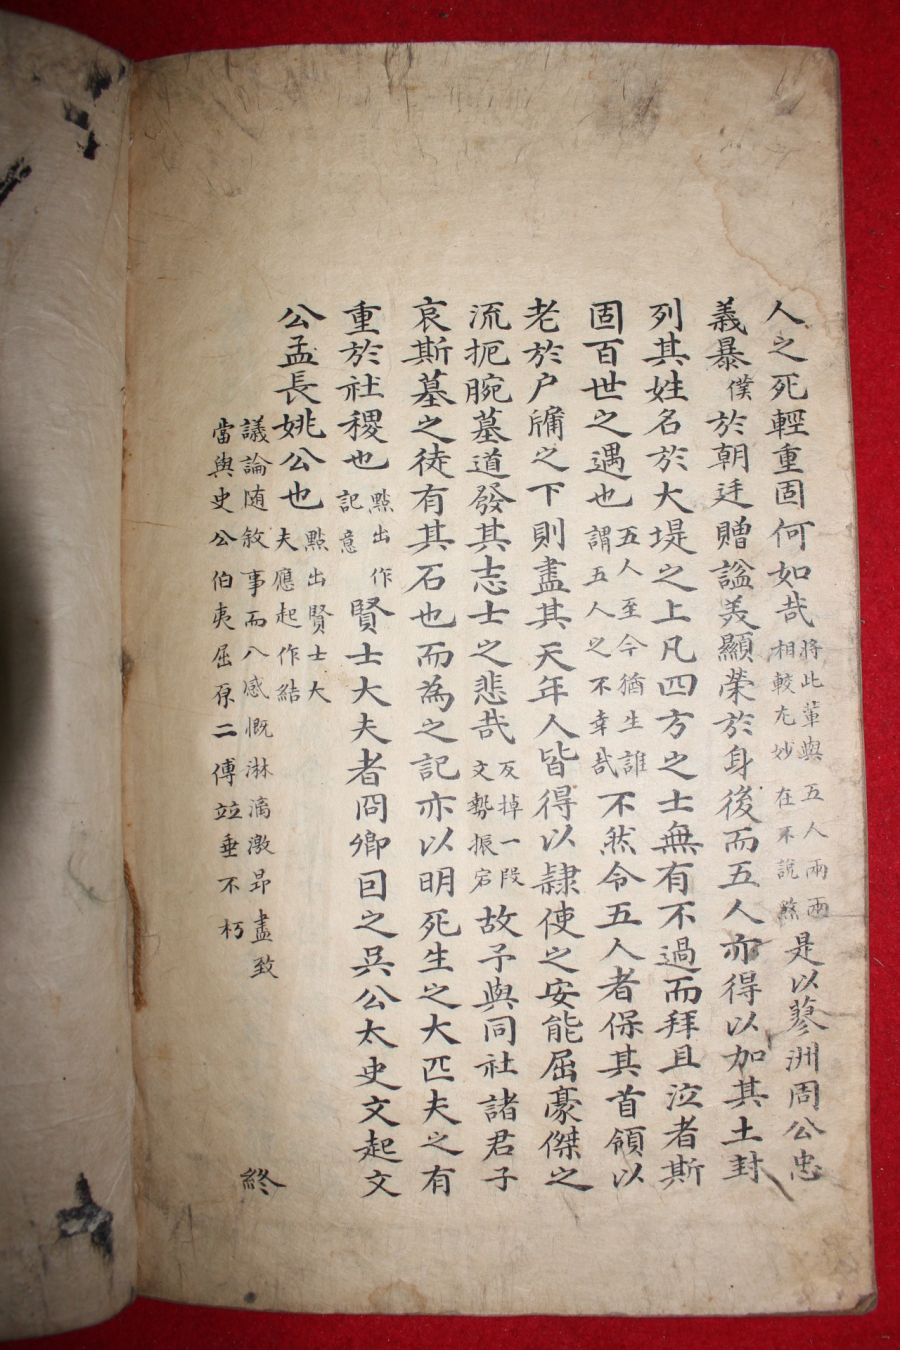 人之死輕重固何如哉將此輩與五人兩兩相較尤妙在不說煞是以蓼洲周公忠
義暴僕於朝廷贈諡美顯榮於身後而五人亦得以加其土封
列其姓名於大堤之上凡四方之士無有不過而拜且泣者斯
固百世之遇也五人至今猶生誰謂五人之不幸哉不然令五人者保其首領以
老於户牖之下則盡其天年人皆得以隷使之安能屈豪傑之
流扼腕墓道發其志士之悲哉反掉一段文勢振宕故予與同社諸君子
哀斯墓之徒有其石也而為之記亦以明死生之大匹夫之有
重於社稷也點出作記意賢士大夫者冏卿因之吳公太史文起文
公孟長姚公也點出賢士大夫應起作結
議論随敘事而入感慨淋漓激昂盡致
當與史公伯夷屈原二傳竝垂不朽
終